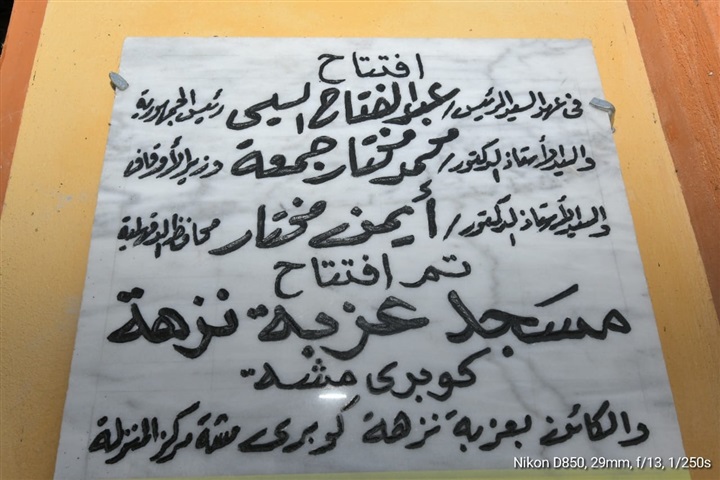 افتتاح
فى عهد السيد الرئيس / عبد الفتاح السيسى رئيس الجمهورية
والسيد الأستاذ الدكتور / محمد مختار جمعة وزير الأوقاف
والسيد الأستاذ الدكتور / أيمن مختار محافظ الدقهلية
تم افتتاح
مسجد عزبة نزهة
كوبرى مشة
والكائن بعزبة نزهة كوبرى مشة مركز المنزلة
Nikon D850, 29mm, f/13, 1/250s